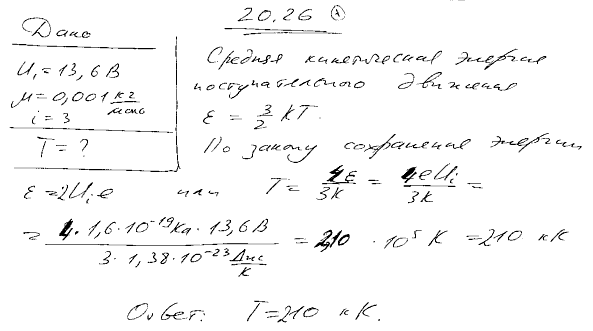 20.26 А
Дано
U_i = 13,6 В
μ = 0,001 кг/моль
i = 3
T = ?
Средняя кинетическая энергия
поступательного движения
ε = 3/2 kT.
По закону сохранения энергии
ε = 2U_i e или T = 4ε/3k = 4eU_i/3k =
= 4 · 1,6 · 10^-19 Кл · 13,6 В / 3 · 1,38 · 10^-23 Дж/К = 2,10 · 10^5 К = 210 кК
Ответ: T = 210 кК.